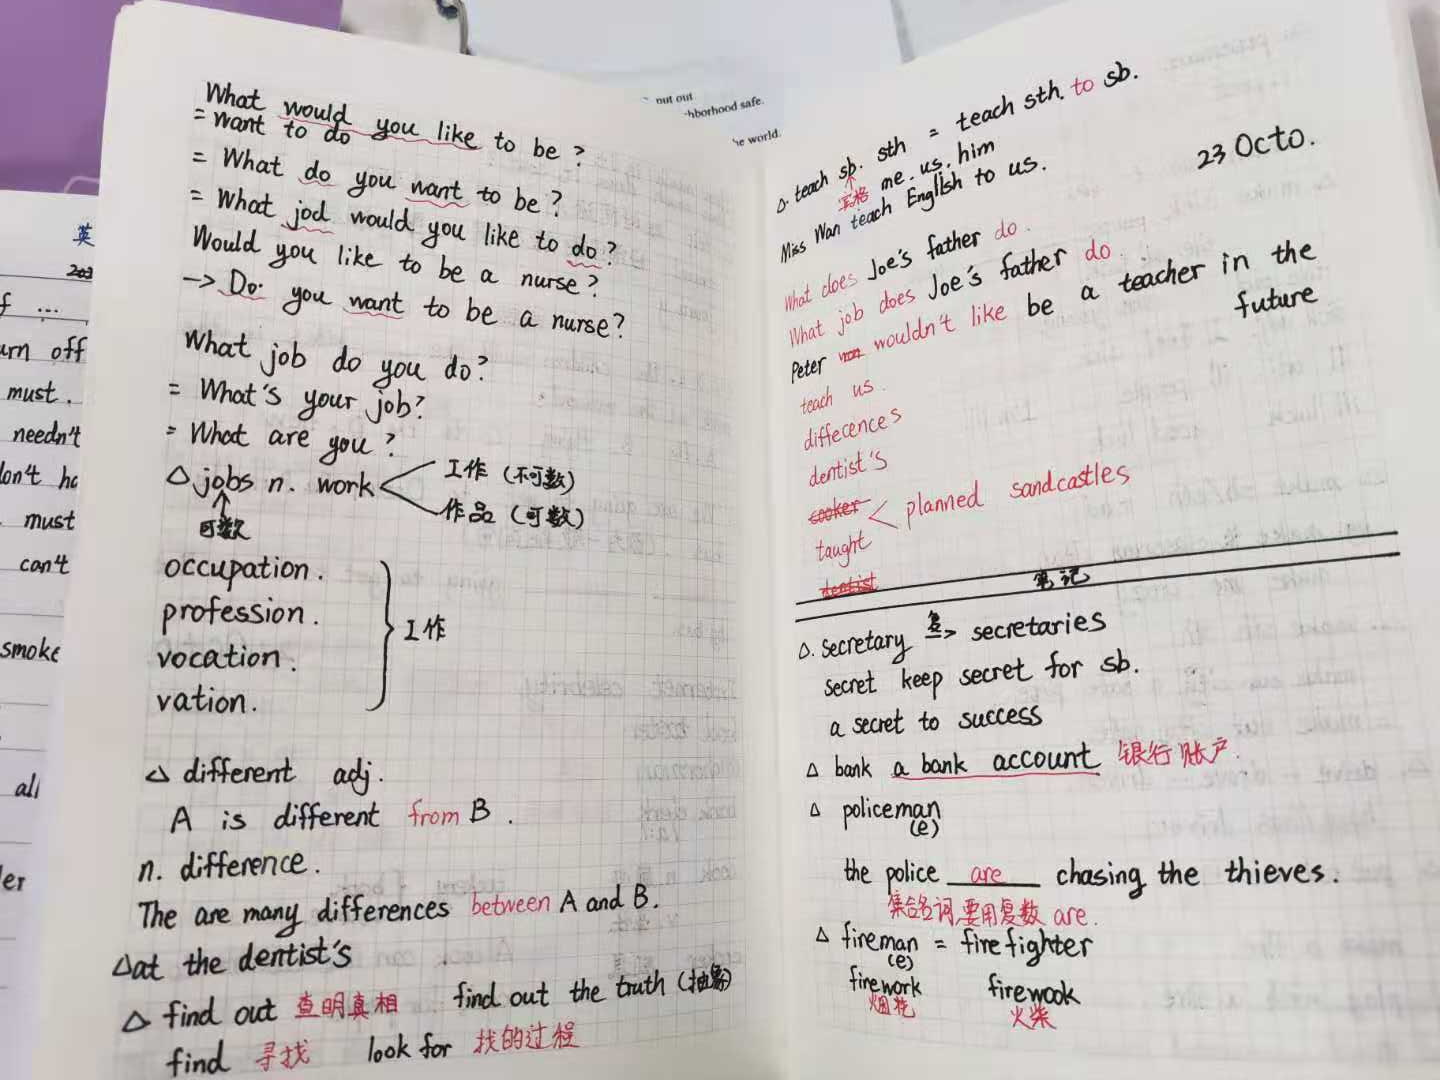 What would you like to be?
= want to do
= What do you want to be?
= What jod would you like to do?
Would you like to be a nurse?
→ Do. you want to be a nurse?
What job do you do?
= What's your job?
= What are you?
△ jobs n. work 工作 (不可数)
作品 (可数)
可数
occupation.
profession.
vocation.
vation.
工作
△ different adj.
A is different from B.
n. difference.
The are many differences between A and B.
△at the dentist's
△ find out 查明真相 find out the truth (抽象)
find 寻找 look for 找的过程
△. teach sb. sth = teach sth. to sb.
宾格 me. us. him
Miss Wan teach English to us.
23 Octo.
What does Joe's father do.
What job does Joe's father do.
Peter wouldn't like be a teacher in the
future
teach us.
diffecences
dentist's
cooker planned sandcastles
taught
dentist
笔记
△. secretary 复-> secretaries
secret keep secret for sb.
a secret to success
△ bank a bank account 银行账户.
△ policeman
(e)
the police are chasing the thieves.
集合名词,要用复数 are.
△ fireman = firefighter
(e)
firework firewook
烟花 火柴
out out
hborhood safe.
he world.
英
202
f ...
urn off
must.
needn't
on't ha
must
can't
smoke
all
er